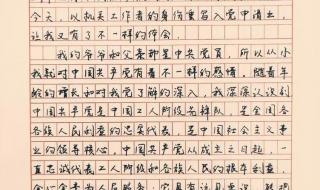 今天，以机关工作者的身份重启入党申请，
让我又有了不一样的体会。
我的爷爷和父亲都是中共党员，所以从小
我就对中国共产党有着不一样的感情，随着年
龄的增长和对我党了解的深入，我深深认识到
中国共产党是中国工人阶级先锋队，是全国各
各族人民利益的忠实代表，是中国社会主义事
业的领导核心，中国共产党从成立之日起，一
直忠诚代表工人阶级和各族人民的根本利益，